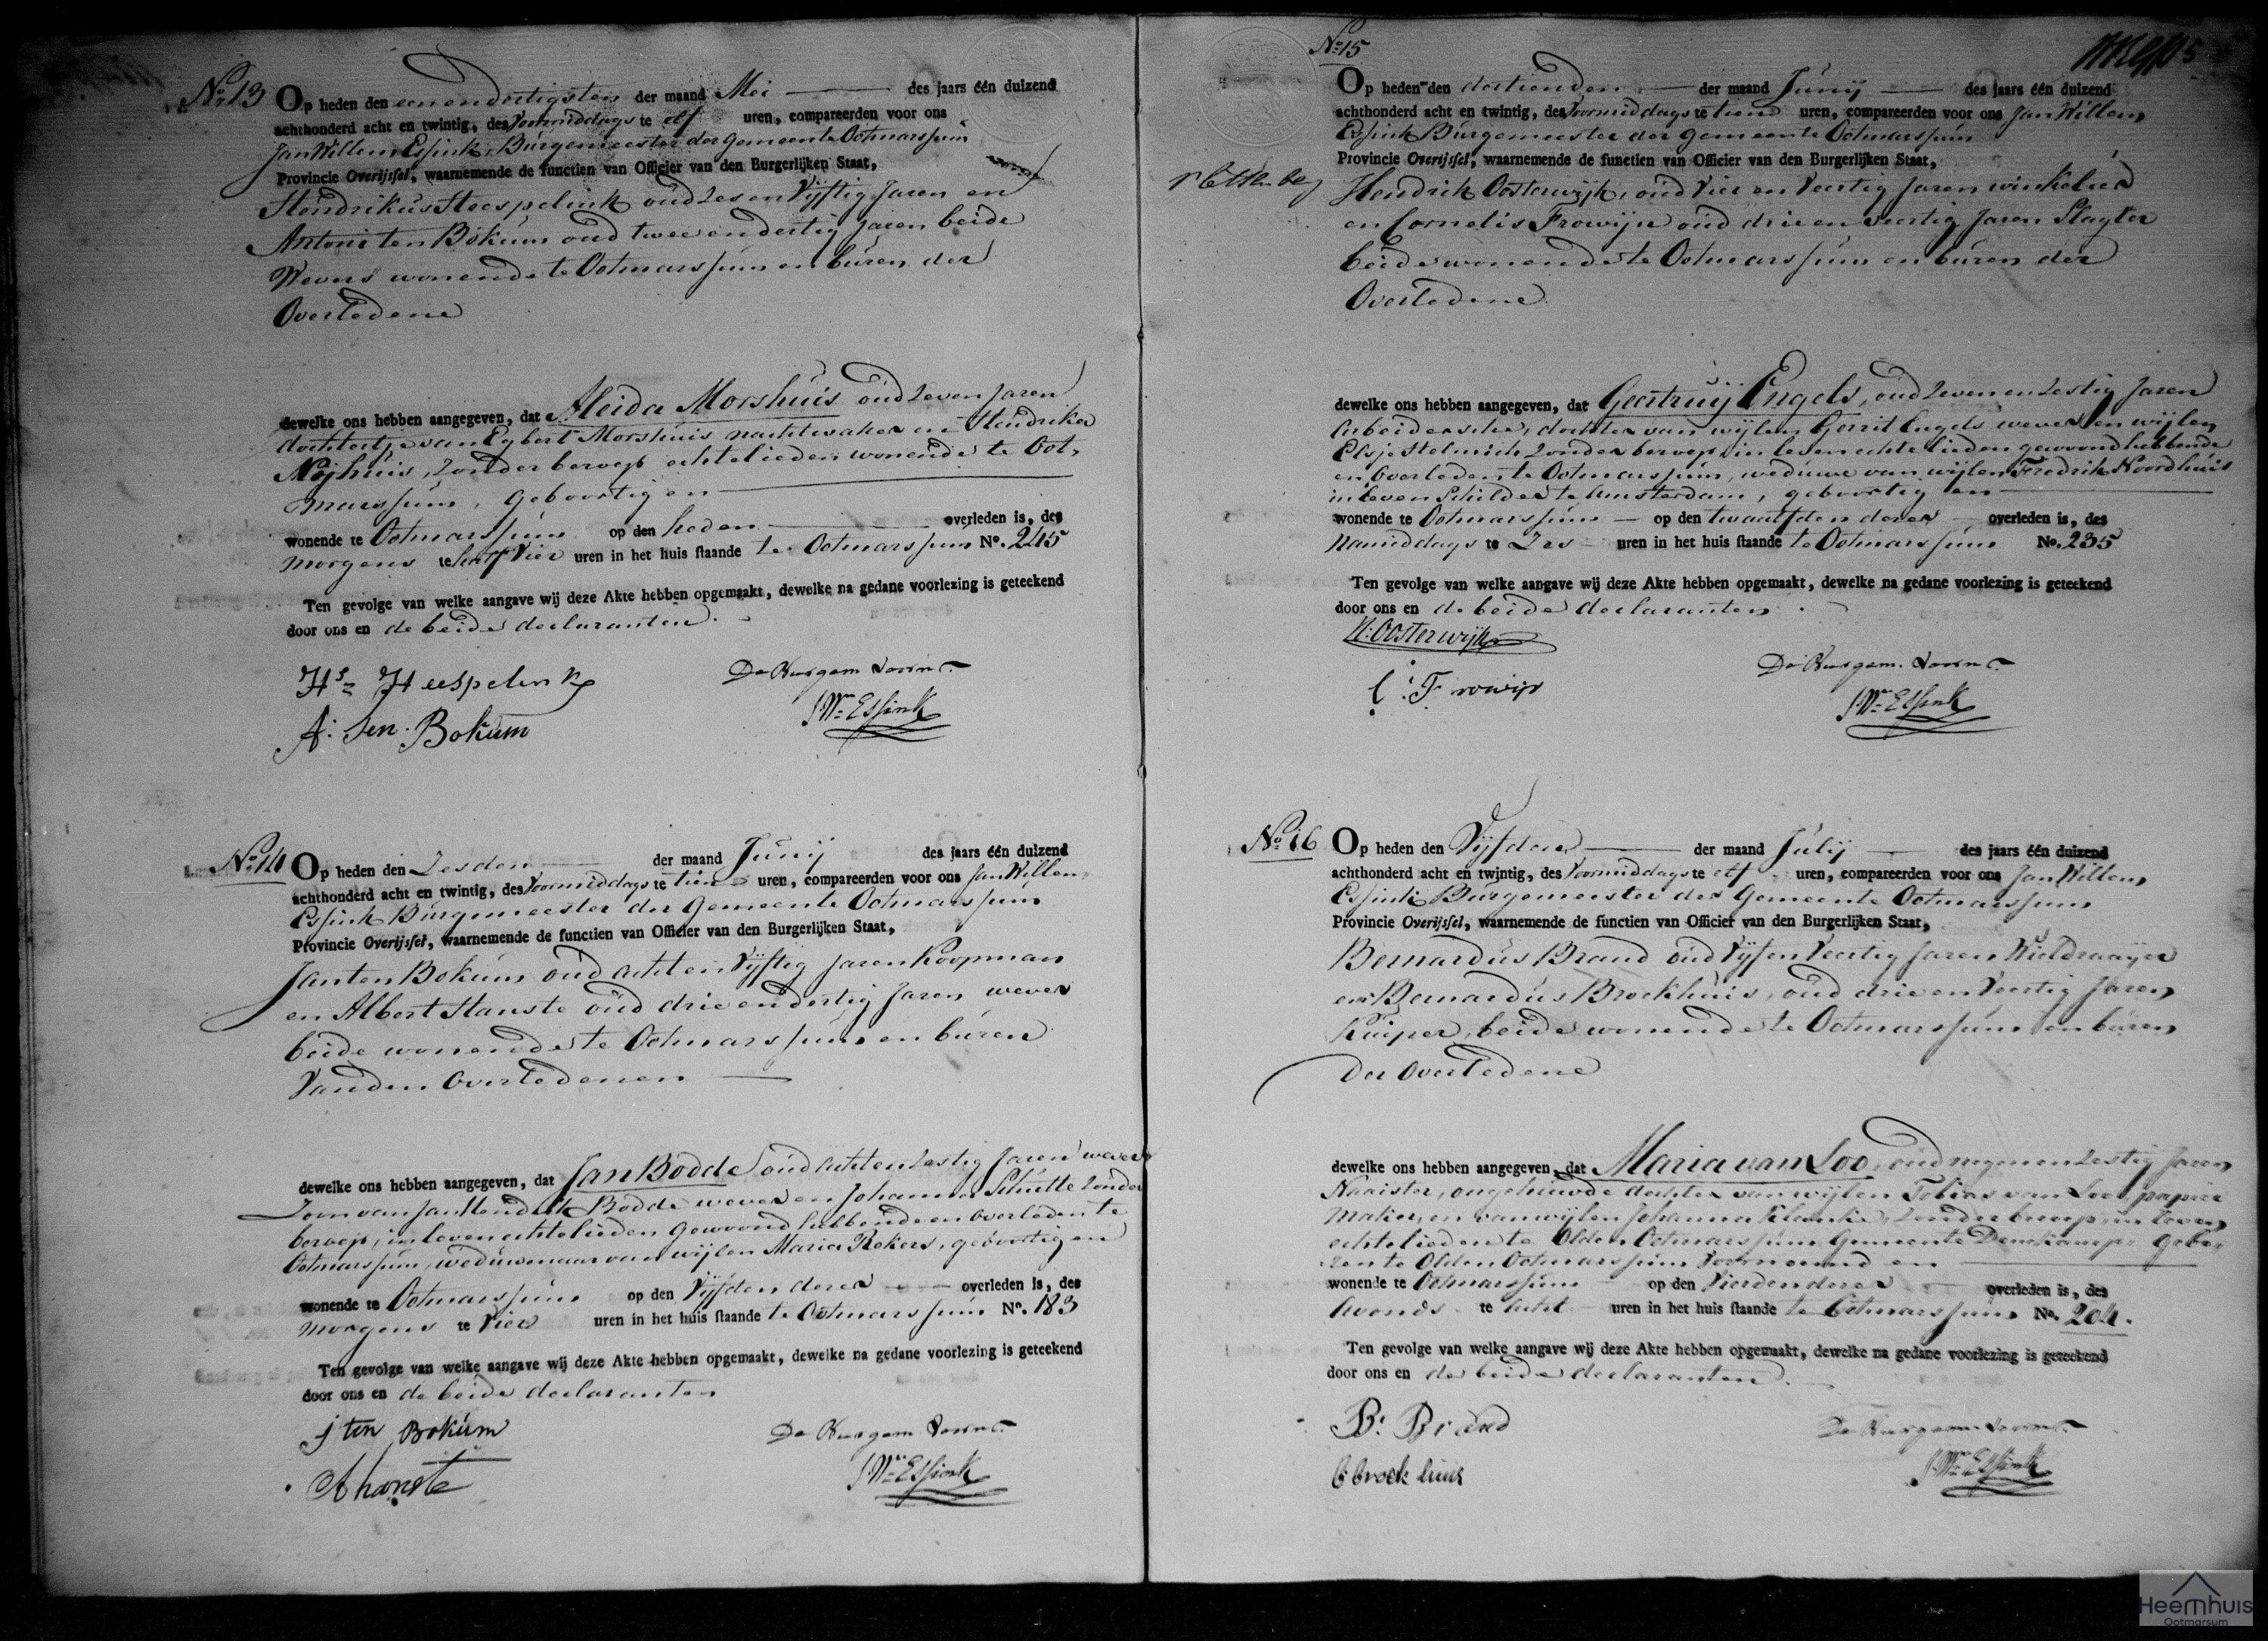 No. 13 Op heden den een en dertigsten der maand Mei des jaars één duizend
achthonderd acht en twintig, des Voormiddags te elf uren, compareerden voor ons
Jan Willem Essink, Burgemeester der Gemeente Ootmarssum
Provincie Overijssel, waarnemende de functien van Officier van den Burgerlijken Staat,
Hendrikus Heespelink oud Zes en Vijftig Jaren en
Antoni ten Bokum oud twee en dertig Jaren beide
Wevers wonende te Ootmarssum en buren der
Overledene
dewelke ons hebben aangegeven, dat Aleida Morshuis oud Zeven Jaren
dochtertje van Egbert Morshuis nachtwaker en Hendrika
Nijhuis, zonder beroep echtelieden wonende te Oot-
marssum, geboortig en
wonende te Ootmarssum op den heden overleden is, des
morgens te half Vier uren in het huis staande te Ootmarssum No. 245
Ten gevolge van welke aangave wij deze Akte hebben opgemaakt, dewelke na gedane voorlezing is geteekend
door ons en de beide declaranten.
Hs= Heespelink
De Burgem. voorn.
A: ten Bokum
J. Wm= Essink
No. 14 Op heden den Zesden der maand Junij des jaars één duizend
achthonderd acht en twintig, des Voormiddags te tien uren, compareerden voor ons Jan Willem
Essink Burgemeester der Gemeente Ootmarssum
Provincie Overijssel, waarnemende de functien van Officier van den Burgerlijken Staat,
Jan ten Bokum oud acht en Vijftig Jaren Koopman
en Albert Hanste oud drie en dertig Jaren wever
beide wonende te Ootmarssum en buren
Van den Overledenen
dewelke ons hebben aangegeven, dat Jan Bodde oud acht en zestig Jaren wever
Zoon van Jan Hendrik Bodde wever en Johanna Schutte zonder
beroep, in leven echtelieden gewoond hebbende en overleden te
Ootmarssum, weduwenaar van wijlen Maria Rekers, geboortig en
wonende te Ootmarssum op den Vijfden dezer overleden is, des
morgens te Vier uren in het huis staande te Ootmarssum No. 183
Ten gevolge van welke aangave wij deze Akte hebben opgemaakt, dewelke na gedane voorlezing is geteekend
door ons en de beide declaranten
J ten Bokum
De Burgem. voorn.
A hanste
J. Wm= Essink
No. 15
Op heden den dertienden der maand Junij des jaars één duizend
achthonderd acht en twintig, des Voormiddags te tien uren, compareerden voor ons Jan Willem
Essink Burgemeester der Gemeente Ootmarssum
Provincie Overijssel, waarnemende de functien van Officier van den Burgerlijken Staat,
Hendrik Oosterwijk, oud Vier en Veertig Jaren winkelier
en Cornelis Frowijn oud drie en veertig Jaren Slagter
beide wonende te Ootmarssum en buren der
Overledene
dewelke ons hebben aangegeven, dat Geertruij Engels, oud Zeven en Zestig Jaren
Arbeidersche, dochter van wijlen Gerrit Engels wever en wijlen
Elsje Stelmich zonder beroep, in leven echtelieden gewoond hebbende
en overleden te Ootmarssum, weduwe van wijlen Fredrik Noordhuis
in leven Schilder te Amsterdam, geboortig en
wonende te Ootmarssum op den twaalfden dezer overleden is, des
Namiddags te Zes uren in het huis staande te Ootmarssum No. 235
Ten gevolge van welke aangave wij deze Akte hebben opgemaakt, dewelke na gedane voorlezing is geteekend
door ons en de beide declaranten.
H: Oosterwijk
De Burgem. voorn.
C: Frowijn
J. Wm= Essink
No. 16 Op heden den Vijfden der maand Julij des jaars één duizend
achthonderd acht en twintig, des Voormiddags te elf uren, compareerden voor ons Jan Willem
Essink Burgemeester der Gemeente Ootmarssum
Provincie Overijssel, waarnemende de functien van Officier van den Burgerlijken Staat,
Bernardus Brand oud Vijf en Veertig Jaren Wieldraayer
en Bernardus Broekhuis, oud drie en Veertig Jaren
Kuiper, beide wonende te Ootmarssum en buren
der Overledene
dewelke ons hebben aangegeven, dat Maria van Loo, oud negen en Zestig Jaren
Naaister, ongehuwde dochter van wijlen Tobias van Loo, papier
maker, en van wijlen Johanna Klanke, zonder beroep, in leven
echtelieden te Olden Ootmarssum Gemeente Denekamp, gebo-
ren te Olden Ootmarssum voornoemd en
wonende te Ootmarssum op den Vierden dezer overleden is, des
Avonds te Acht uren in het huis staande te Ootmarssum No. 204.
Ten gevolge van welke aangave wij deze Akte hebben opgemaakt, dewelke na gedane voorlezing is geteekend
door ons en de beide declaranten.
B: Brand
De Burgem. voorn.
B broekhuis
J. Wm= Essink
Heemhuis
Ootmarsum